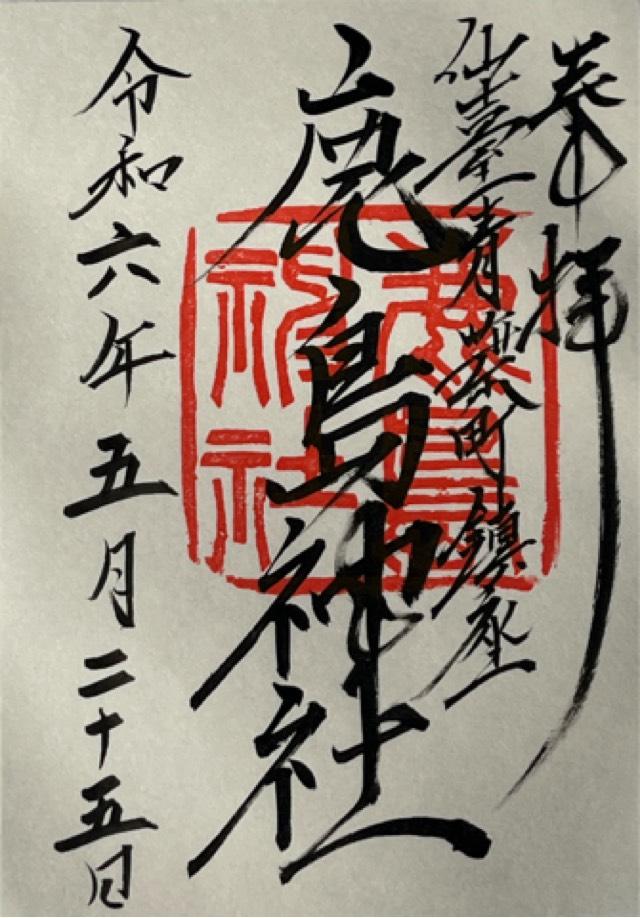 奉拝
仙臺青葉町鎮座
鹿島神社
令和六年五月二十五日
鹿島
神社